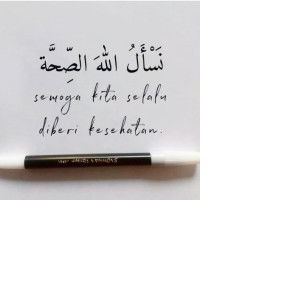 نَسْأَلُ اللهَ الصِّحَّة
semoga kita selalu
diberi kesehatan.